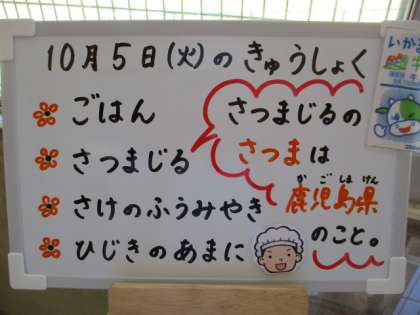 10月5日(火)のきゅうしょく
ごはん
さつまじる
さけのふうみやき
ひじきのあまに
さつまじるの
さつまは
かごしまけん
鹿児島県
のこと。
いかる
牛